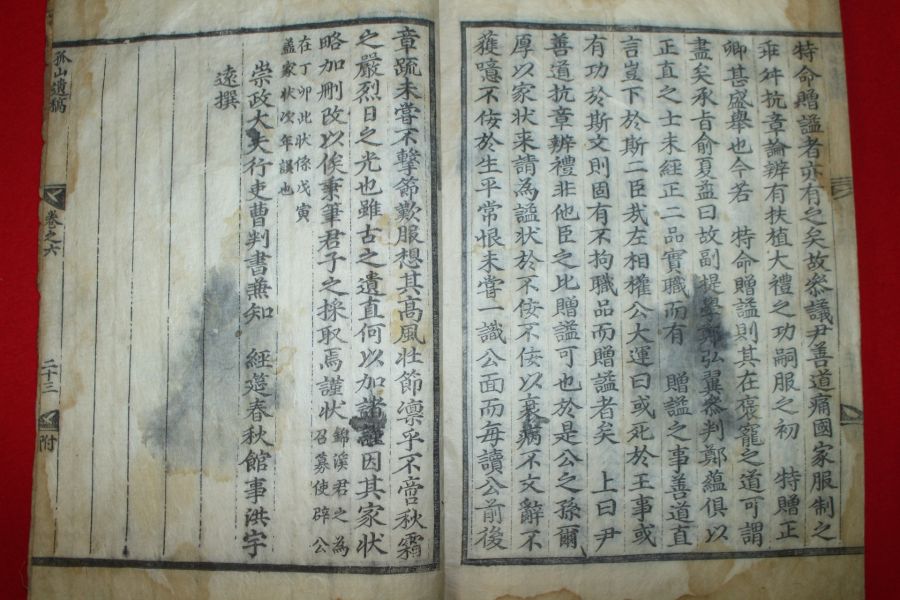 特命贈謚者亦有之矣故參議尹善道痛國家服制之
乖舛抗章論辨有扶植大禮之功嗣服之初 特贈正
卿甚盛舉也今若 特命贈謚則其在褒寵之道可謂
盡矣承旨俞夏益曰故副提學鄭弘翼參判鄭蘊俱以
正直之士未經正二品實職而有 贈謚之事善道直
言豈下於斯二臣哉左相權公大運曰或死於王事或
有功於斯文則固有不拘職品而贈謚者矣 上曰尹
善道抗章辨禮非他臣之比贈謚可也於是公之孫爾
厚以家狀來請為謚狀於不侫不侫以衰病不文辭不
獲噫不侫於生平常恨未嘗一識公面而每讀公前後
章疏未嘗不擊節歎服想其高風壯節凛乎不啻秋霜
之嚴烈日之光也雖古之遺直何以加諸謹因其家狀
略加刪改以俟秉筆君子之採取焉謹狀 錦溪君之為召募使辟公
在丁卯此狀係戊寅盖家狀次年誤也
崇政大夫行吏曹判書兼知 經筵春秋館事洪宇
遠撰
孤山遺稿
卷之六
二十三
附